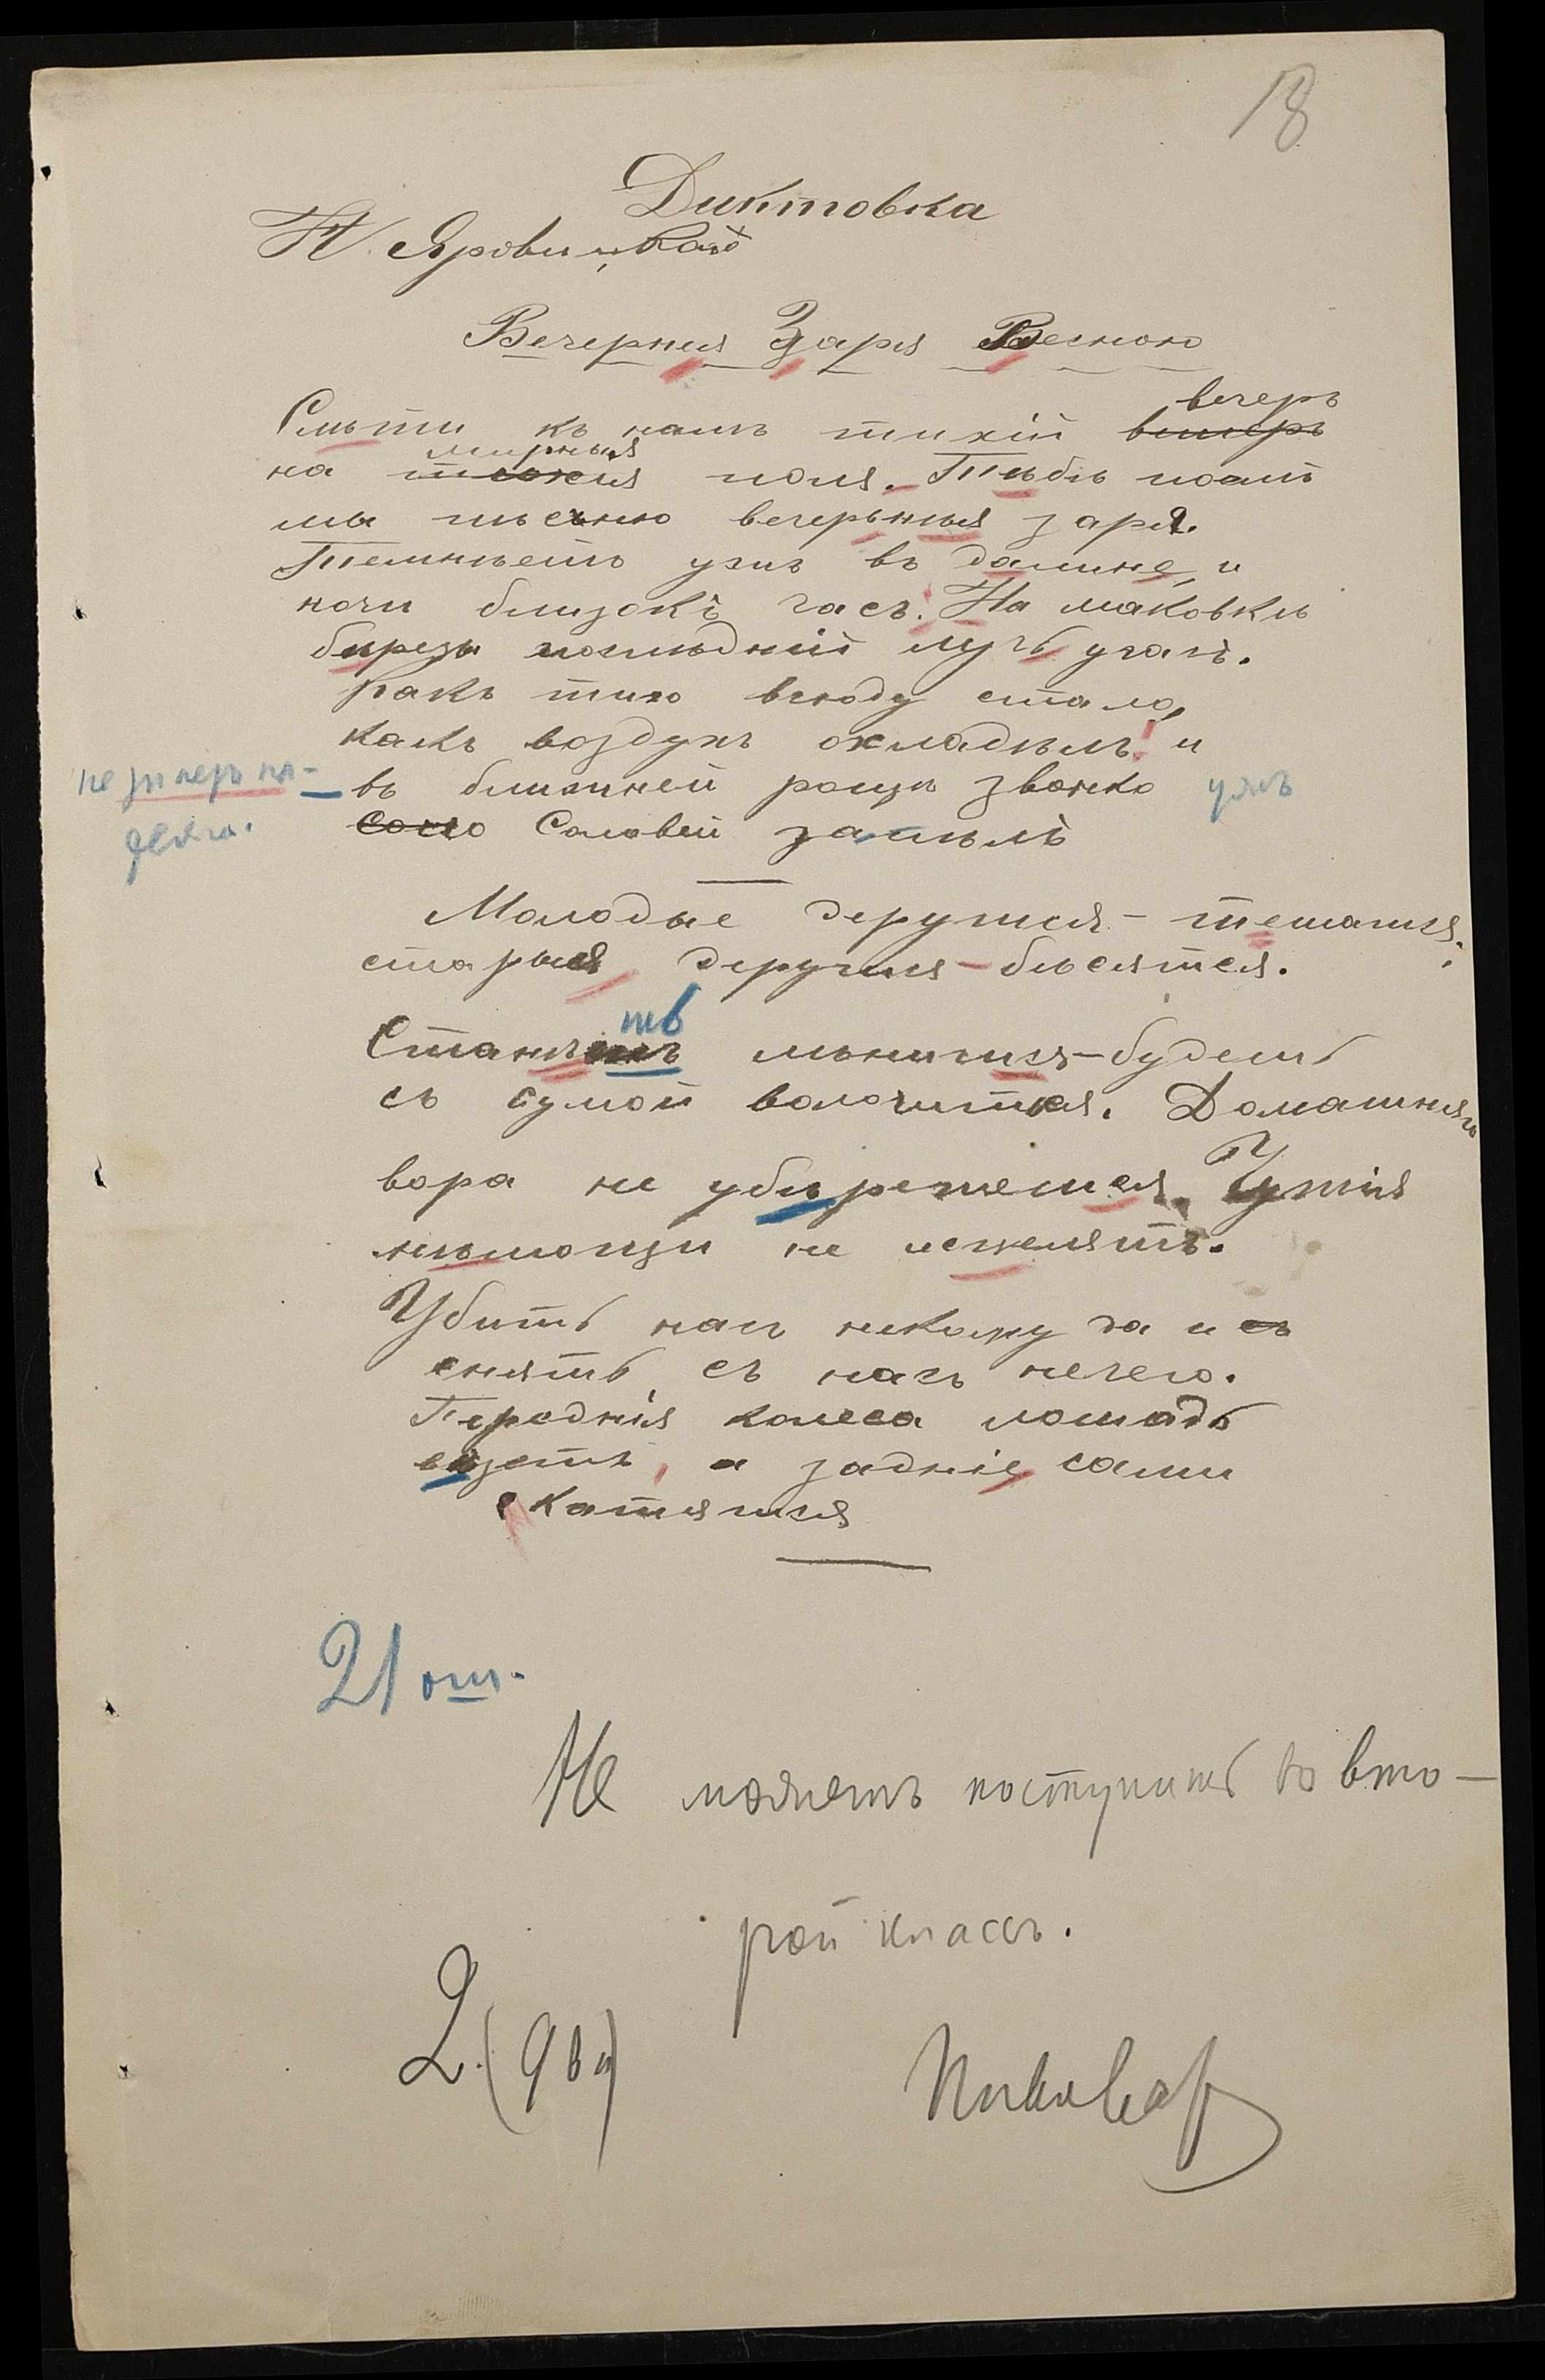 18
Диктовка
Н. Яровицкаго
Вечерния Заря Весною
вечеръ
Смѣти къ намъ тихій
мирныя
на поля. Тѣбѣ поемъ
мы пѣсню вечерьныя заря.
Темнѣетъ ужъ въ далине, и
ночи близокъ часъ. На маковкѣ
бирезы послѣдній лучь угасъ.
Какъ тихо всюду стало,
какъ воздухъ охладѣлъ! и
въ ближней рощѣ звонко ужъ
Соловей запѣлъ
Молодые дерутся - тешатся;
старыя дерутся - бѣсятся.
ть
мѣнятся - будешь
съ сумой волочится. Домашняго
вора не убѣрежешся. Чужія
нѣмощи не исцелятъ.
Убить насъ некому да и
снять съ насъ нечего.
Переднія колеса лошадь
везетъ, а задніе сами
катятся
21 ош.
Не можетъ поступить во вто-
рой классъ.
2 (два)